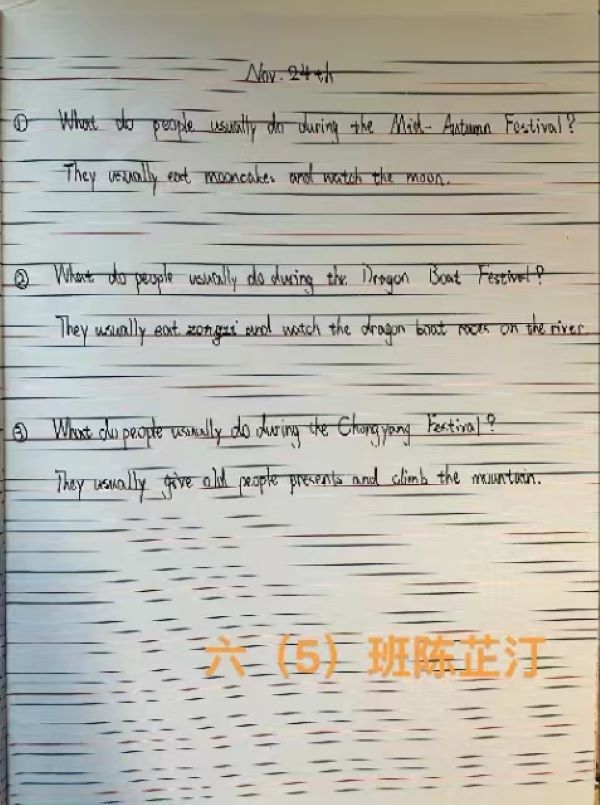 Nov. 24th
① What do people usually do during the Mid-Autumn Festival?
They usually eat mooncakes and watch the moon.
② What do people usually do during the Dragon Boat Festival?
They usually eat zongzi and watch the dragon boat races on the river.
③ What do people usually do during the Chongyang Festival?
They usually give old people presents and climb the mountain.
六（5）班陈芷汀